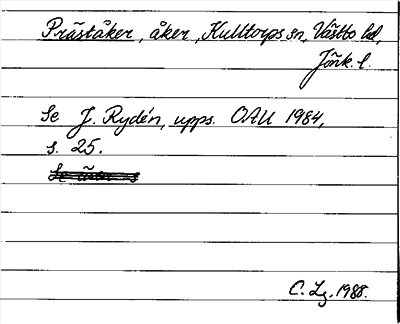 Präståker, åker, Kulltorps sn, Västbo hd,
Jönk. l.
Se J. Rydén, upps. OAU 1984,
s. 25.
C. Lg. 1988.